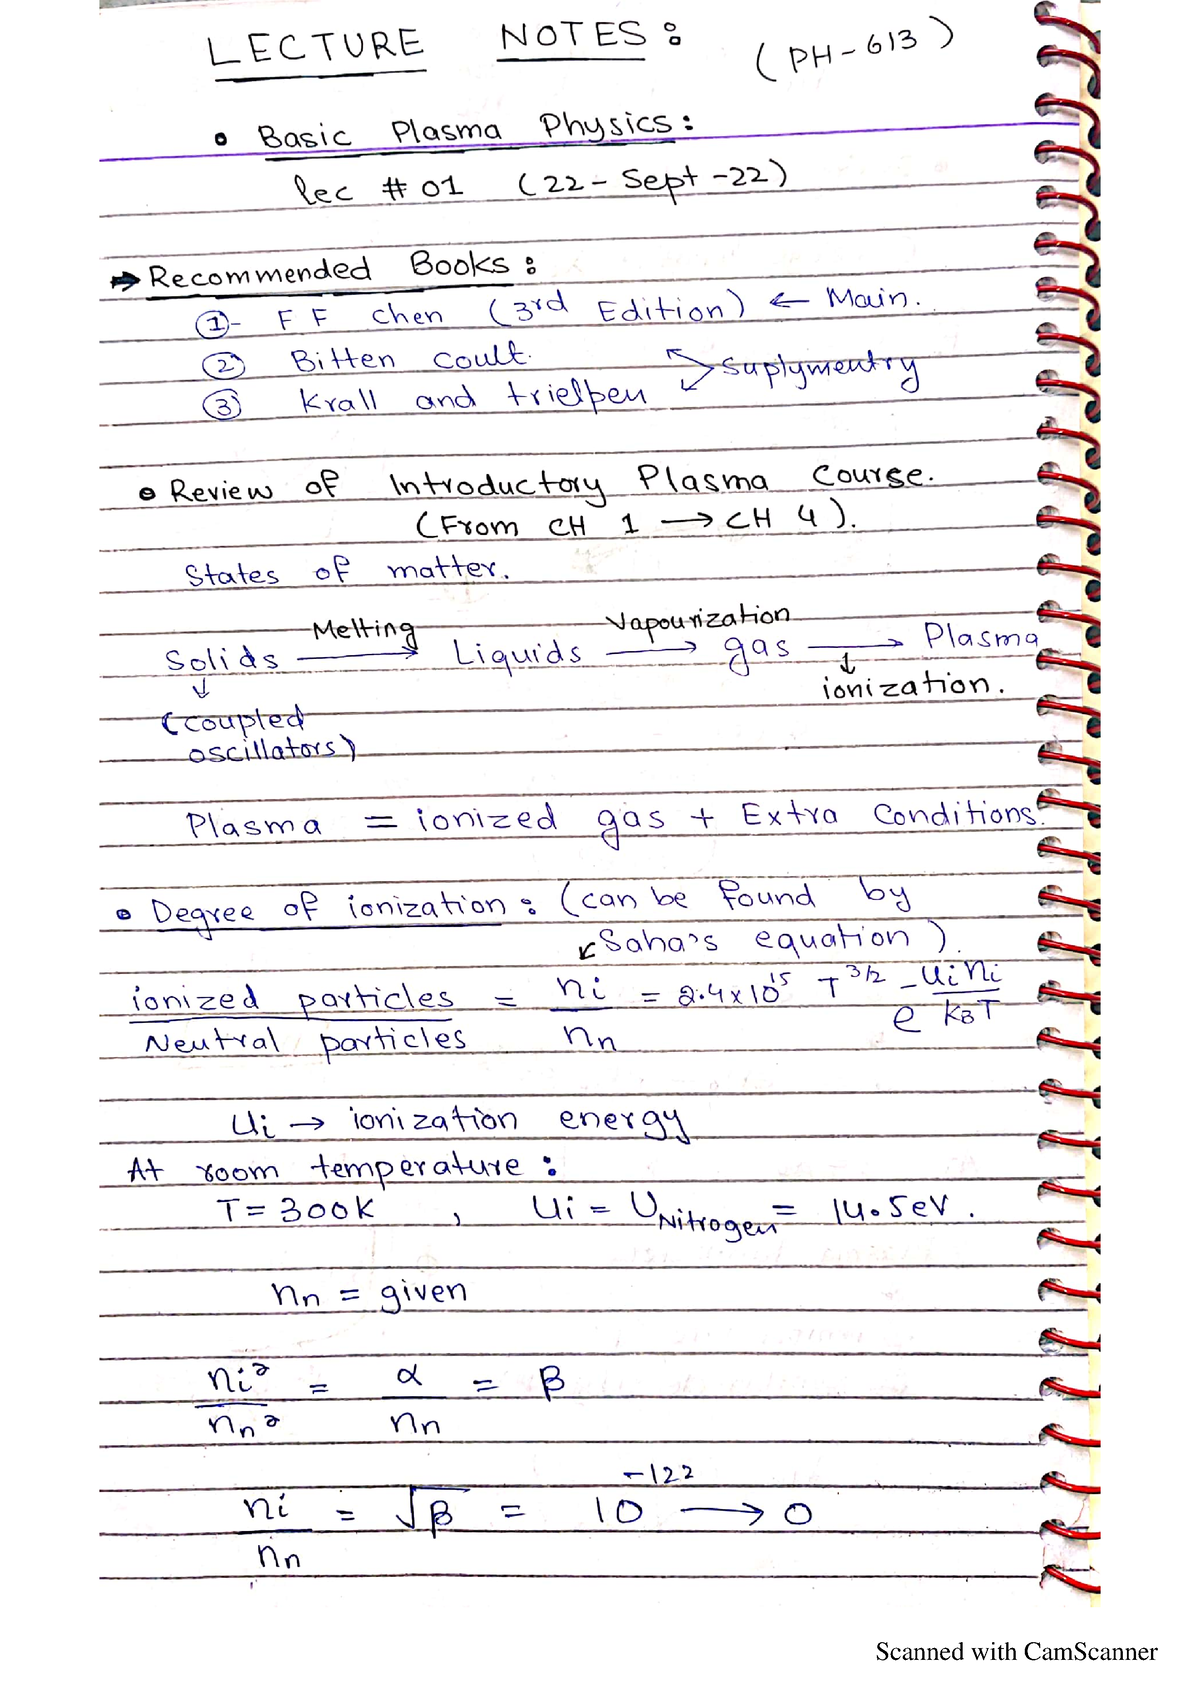 LECTURE NOTES:
(PH-613)
• Basic Plasma Physics:
lec # 01 (22-Sept-22)
→ Recommended Books:
①- F F Chen (3rd Edition) ← Main.
② Bitten coult.
suplymentry
③ Krall and trielpeu
• Review of Introductory Plasma Course.
(From CH 1 → CH 4).
States of matter.
Solids Melting → Liquids Vapourization → gas → Plasma
↓ ionization.
↓
(coupled
oscillators)
Plasma = ionized gas + Extra Conditions.
• Degree of ionization: (can be found by
↙ Saha's equation).
ionized particles / Neutral particles = ni / nn = 2.4x10^15 T^3/2 e^-Ui ni / kBT
Ui → ionization energy
At room temperature:
T = 300K , Ui = U Nitrogen = 14.5eV.
nn = given
ni² / nn² = α / nn = β
ni / nn = √β = 10^-122 → 0
Scanned with CamScanner